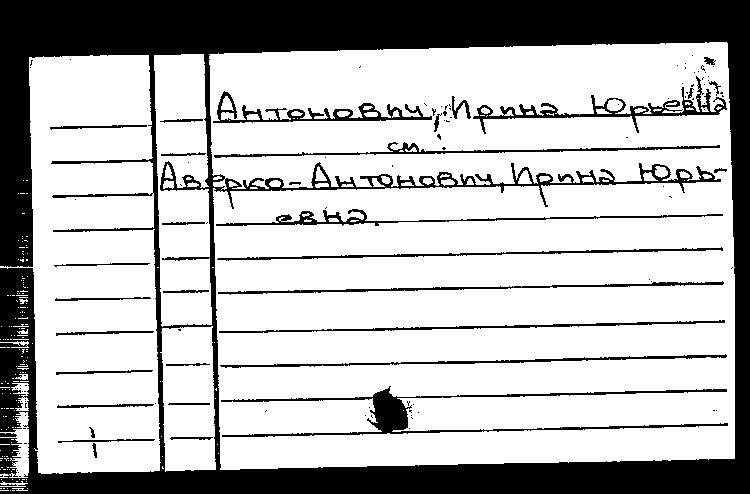 Антонович, Ирина Юрьевна
см.:
Аверко-Антонович, Ирина Юрь-
евна.